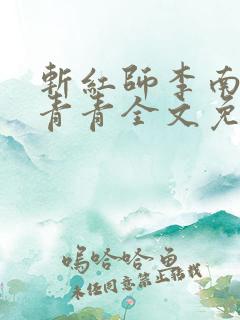 斬紅師李南
青青全文免
嗚哈哈魚
未經同意禁止轉載